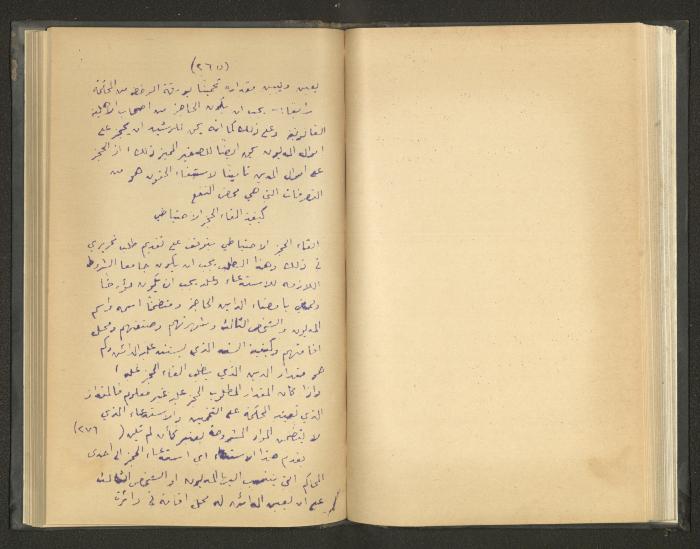 (٢٦٥)
يعين وليس مقداره تخميناً بورقة الرخصة من المحكمة
رابعاً :- يجب ان يكون الحاجز من اصحاب الاهلية
القانونية وعلى ذلك كما انه يحق للرشيد ان يحجز على
اموال المديون يحق ايضاً للصغير المميز ذلك اذ الحجز
على اموال المدين تأميناً لاستيفاء الحقوق هو من
التصرفات التي هي محض النفع
كيفية القاء الحجز الاحتياطي
القاء الحجز الاحتياطي يتوقف على تقديم طلب تحريري
في ذلك وهذا الطلب يجب ان يكون جامعاً الشروط
اللازمة للاستدعاء وعليه يجب ان يكون مؤرخاً
وممضي بامضاء الداين الحاجز ومتضمناً اسمه واسم
المديون والشخص الثالث وشهرتهم وصنعتهم ومحل
اقامتهم وكيفية السند الذي يستند عليه الدائن وكم
هو مقدار الدين الذي يطلب القاء الحجز عليه )
واذا كان المقدار المطلوب الحجز عليه غير معلوم فالمقدار
الذي تعينه المحكمة على التخمين والاستدعاء الذي
لا يتضمن المواد المشروحة يعتبر كأن لم يكن ( ٢٧٦)
يقدم هذا الاستدعاء اي استدعاء الحجز الى احدى
المحاكم التي ينتسب اليها المديون او الشخص الثالث
على ان يعين الدائن له محل اقامة في دائرة